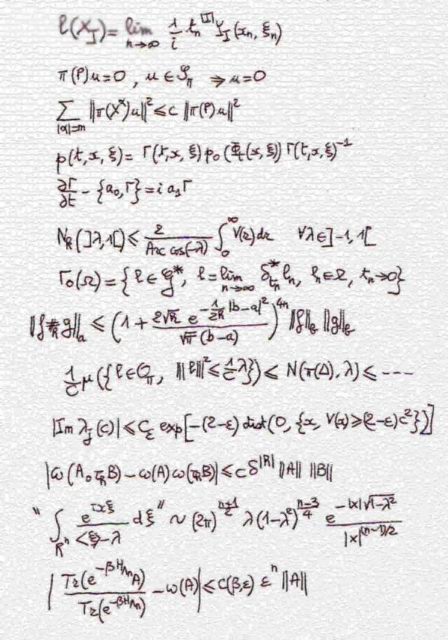 ℓ(X_I) = lim_{n→∞} 1/i t_n^{|I|} Y_I(x_n, ξ_n)
π(P)u=0, u∈𝒮_π ⇒ u=0
∑_{|α|=m} ‖π(X^α)u‖² ≤ c ‖π(P)u‖²
p(t,x,ξ) = Γ(t,x,ξ) p₀(Φ_t(x,ξ)) Γ(t,x,ξ)^{-1}
∂Γ/∂t - {a₀,Γ} = i a₁Γ
N_R(]λ,1[) ≤ 2/(Arc cos(-λ)) ∫_0^∞ V(r)dr ∀λ∈]-1,1[
Γ₀(Ω) = {ℓ∈𝒢*, ℓ = lim_{n→∞} δ*_{t_n} ℓ_n, ℓ_n∈Ω, t_n→0}
(1 + (2√ħ e^{-1/2ħ |b-a|²})/(√π (b-a)))^{4n}
1/C μ({ℓ∈O_π, |||ℓ|||² ≤ 1/C λ}) ≤ N(π(Δ),λ) ≤ ---
|Im λ_j(c)| ≤ C_ε exp[-(2-ε) dist(0, {x, V(x) ≥ (2-ε)c²})]
|ω(A∘τ_R B) - ω(A)ω(τ_R B)| ≤ c δ^{|R|} ‖A‖ ‖B‖
" ∫_{ℝⁿ} e^{ixξ}/(<ξ>-λ) dξ " ~ (2π)^{(n+1)/2} λ(1-λ²)^{(n-3)/4} e^{-|x|√(1-λ²)}/|x|^{(n-1)/2}
| Tr(e^{-βH_{Λn}}A)/Tr(e^{-βH_{Λn}}) - ω(A) | ≤ C(β,ε) εⁿ ‖A‖